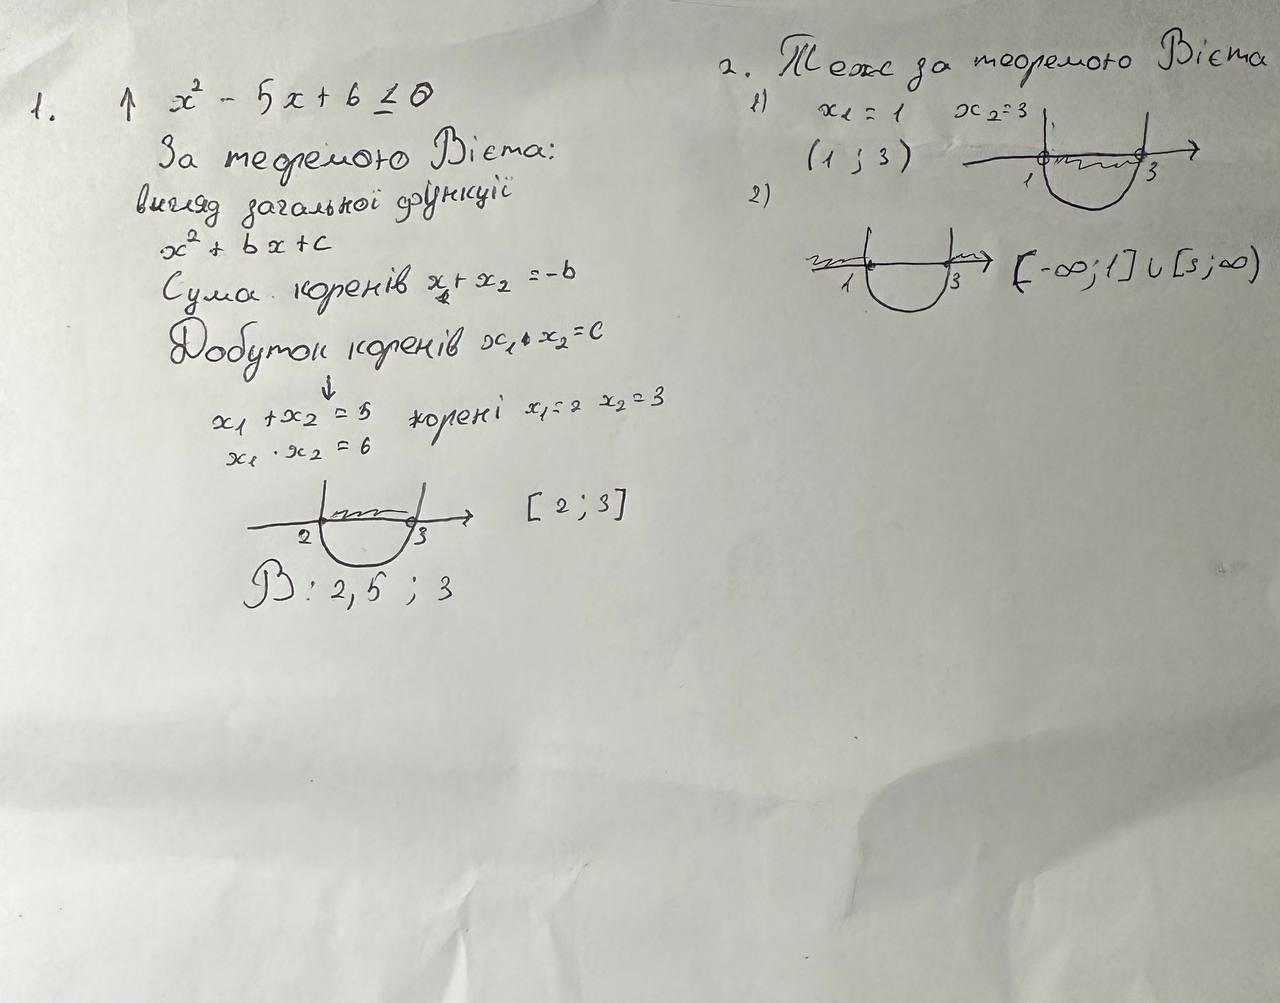 1. ↑ x² - 5x + 6 ≤ 0
За теоремою Вієта:
вигляд загальної функції
x² + bx + c
Сума коренів x₁ + x₂ = -b
Добуток коренів x₁ · x₂ = c
↓
x₁ + x₂ = 5 корені x₁ = 2 x₂ = 3
x₁ · x₂ = 6
2 3 [2; 3]
В: 2,5 ; 3
2. Теж за теоремою Вієта
1) x₁ = 1 x₂ = 3
(1 ; 3) 1 3
2)
1 3 [-∞; 1] ∪ [3; ∞)